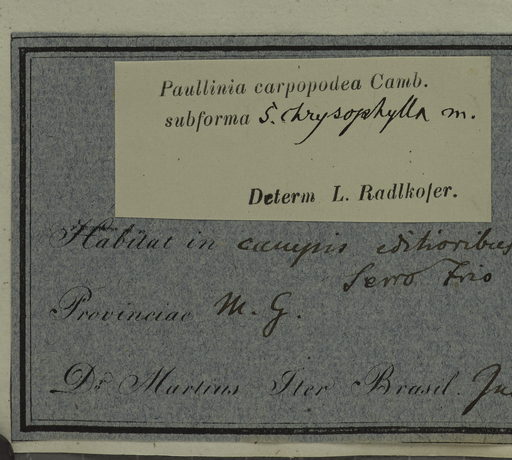 Paullinia carpopodea Camb.
subforma 5. chrysophylla m.
Determ L. Radlkofer.
Habitat in campis editioribus
Serro Frio
Provinciae M. G.
Dr. Martius Iter Brasil.